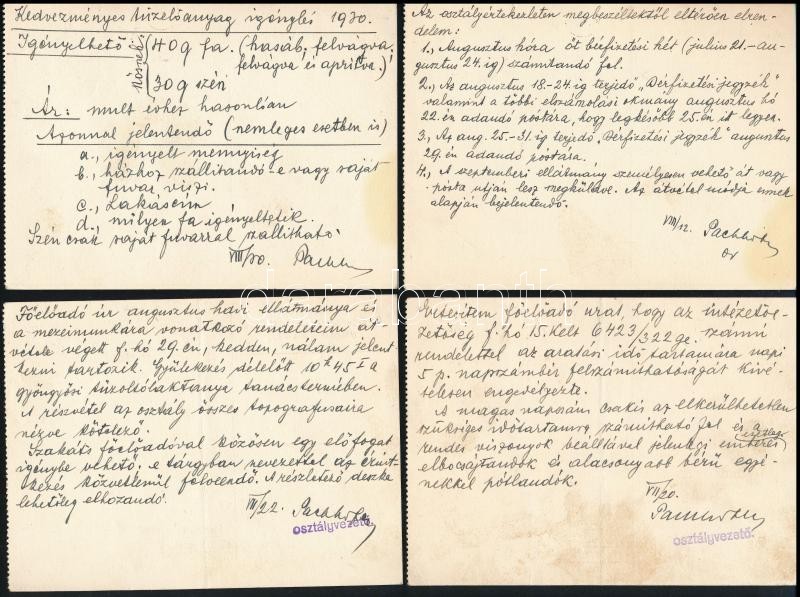 Kedvezményes tüzelőanyag igénylés 1930.
Igényelhető: 40 q fa. (hasáb, felvágva,
felvágva és aprítva.)
30 q szén
Ár: mult évhez hasonlóan
Azonnal jelentendő (nemleges esetben is)
a., igényelt mennyiség
b., házhoz szállítandó-e vagy saját
fuvar. viszi.
c., Lakáscím
d., milyen fa igényeltetik.
Szén csak saját fuvarral szállítható
VIII/30.
Az osztályértekezleten megbeszéltektől eltérően elren-
delem:
1., Augusztus hóra öt bérfizetési hét (július 21.-au-
gusztus 24.ig) számítandó fel.
2., Az augusztus 18.-24.ig terjedő "Bérfizetési jegyzék"
valamint a többi elszámolási okmány augusztus hó
22.én adandó postára, hogy legkésőbb 25.én itt legyen.
3., Az aug. 25.-31.ig terjedő "Bérfizetési jegyzék" augusztus
29.én adandó postára.
4., A szeptemberi ellátmány személyesen vehető át vagy
posta utján lesz megküldve. Az átvétel módja ennek
alapján bejelentendő.
VIII/12.
Főelőadó úr augusztus havi ellátmánya és
a mezeimunkára vonatkozó rendeleteim át-
vétele végett f. hó 29.én, kedden, nálam jelent-
kezni tartozik. Gyülekezés délelőtt 10h 45 a
gyöngyösi tüzoltólaktanya tanácstermében.
A részvétel az osztály összes topografusaira
nézve kötelező.
Szakáts főelőadóval közösen egy előfogat
igénybe vehető. e tárgyban nevezettel az érint-
kezés közvetlenül felveendő. A részletező deszka
lehetőleg elhozandó.
VIII/22.
osztályvezető.
Értesítem főelőadó urat, hogy az intézetve-
zetőség f. hó 15. kelt 6423/322 ge. számú
rendelettel az aratási idő tartamára napi
5 p. napszámbér felszámíthatóságát kivé-
telesen engedélyezte.
A magas napszám csakis az elkerülhetetlen
szükséges időtartamra számítható fel és
rendes viszonyok beálltával jelenlegi
elbocsájtandók és alacsonyabb bérű egyé-
nekkel pótlandók.
VII/20.
osztályvezető.
darabanth